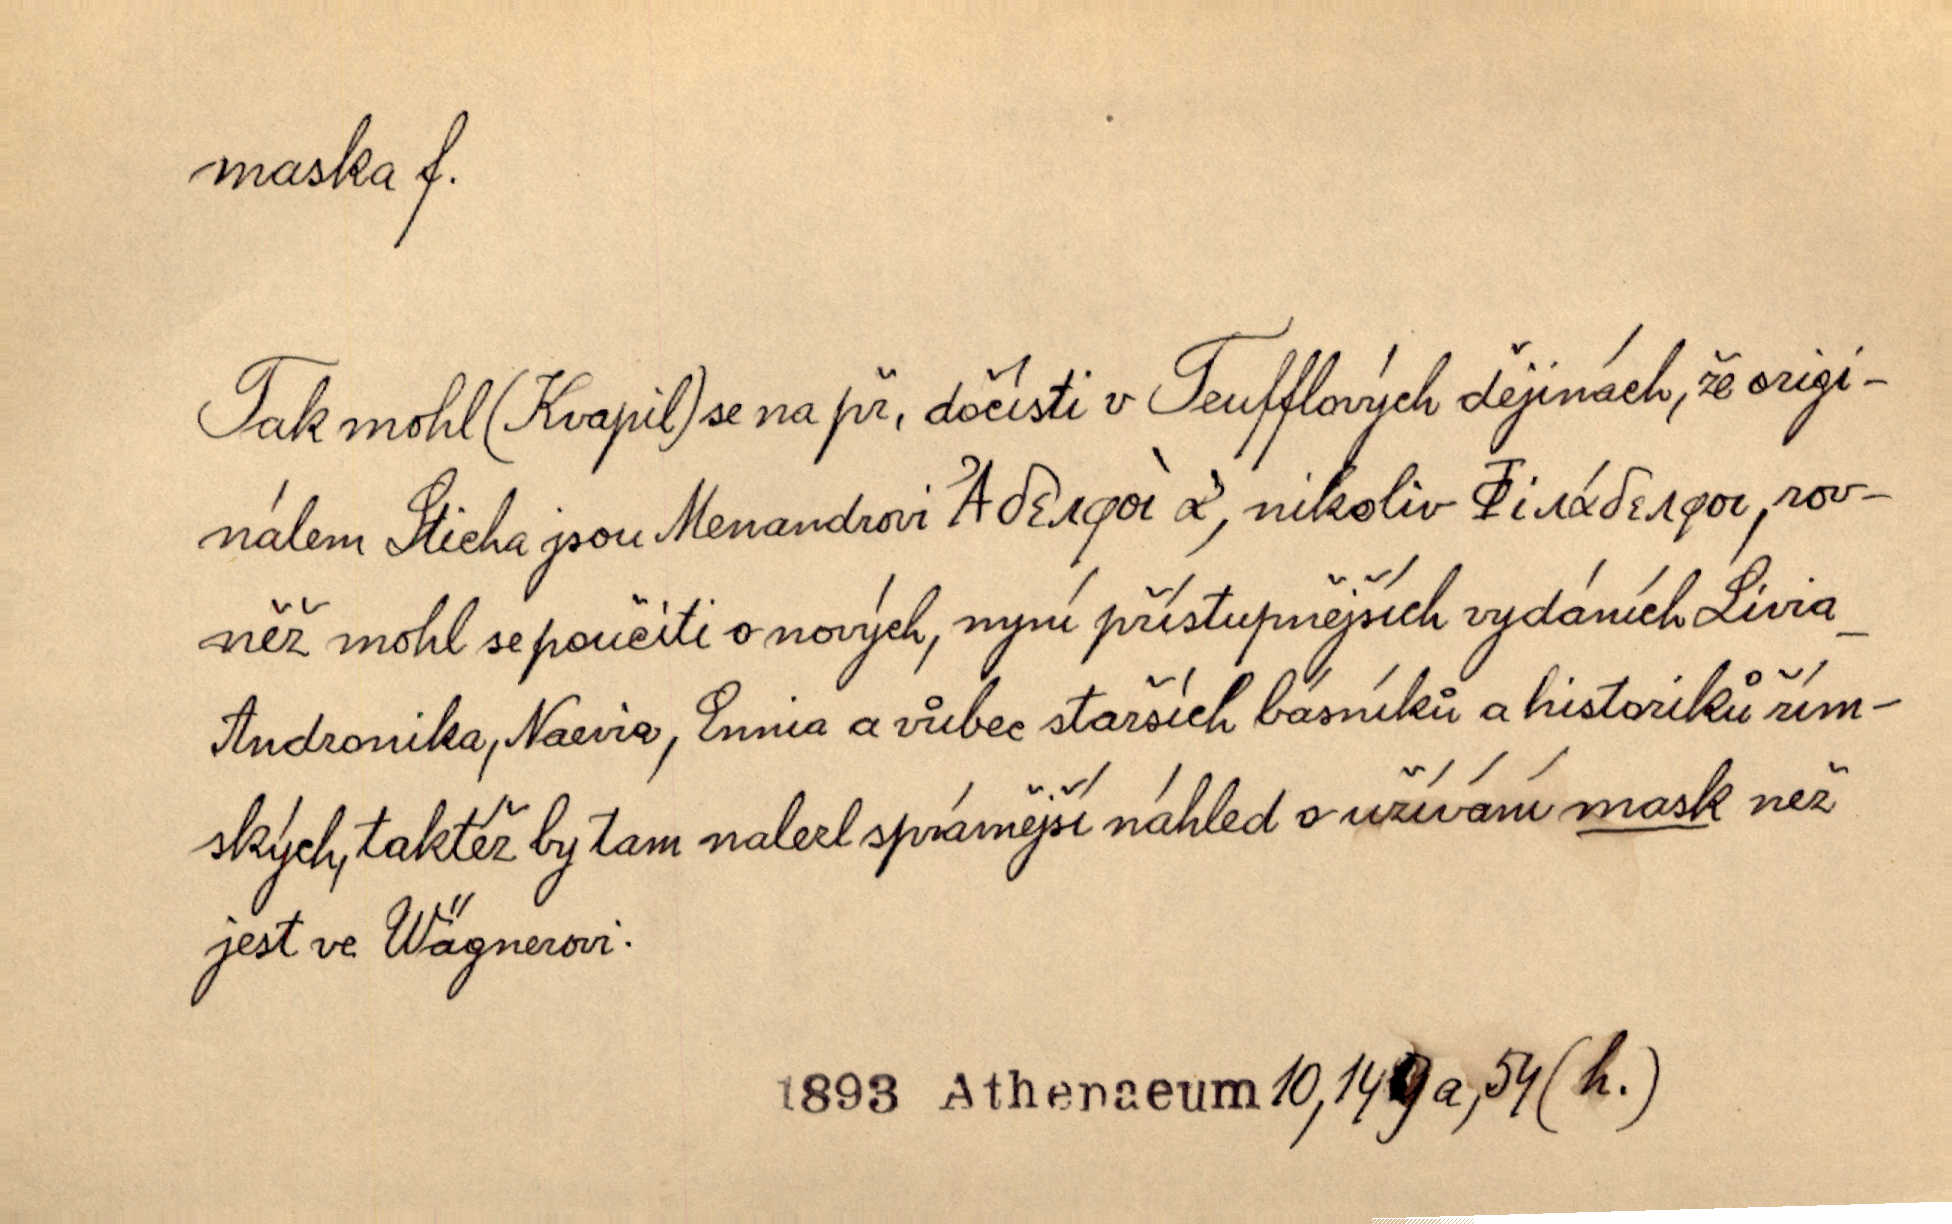 maska f.
Tak mohl (Kvapil) se na př. dočísti v Teufflových dějinách, že origi-
nálem Sticha jsou Menandrovi Ἀδελφοὶ ά, nikoliv Φιλάδελφοι, rov-
něž mohl se poučiti o nových, nyní přístupnějších vydáních Livia
Andronika, Naevia, Ennia a vůbec starších básníků a historiků řím-
ských, taktéž by tam nalezl správnější náhled o užívání mask než
jest ve Wägnerovi.
1893 Athenaeum 10, 149a, 54 (h.)